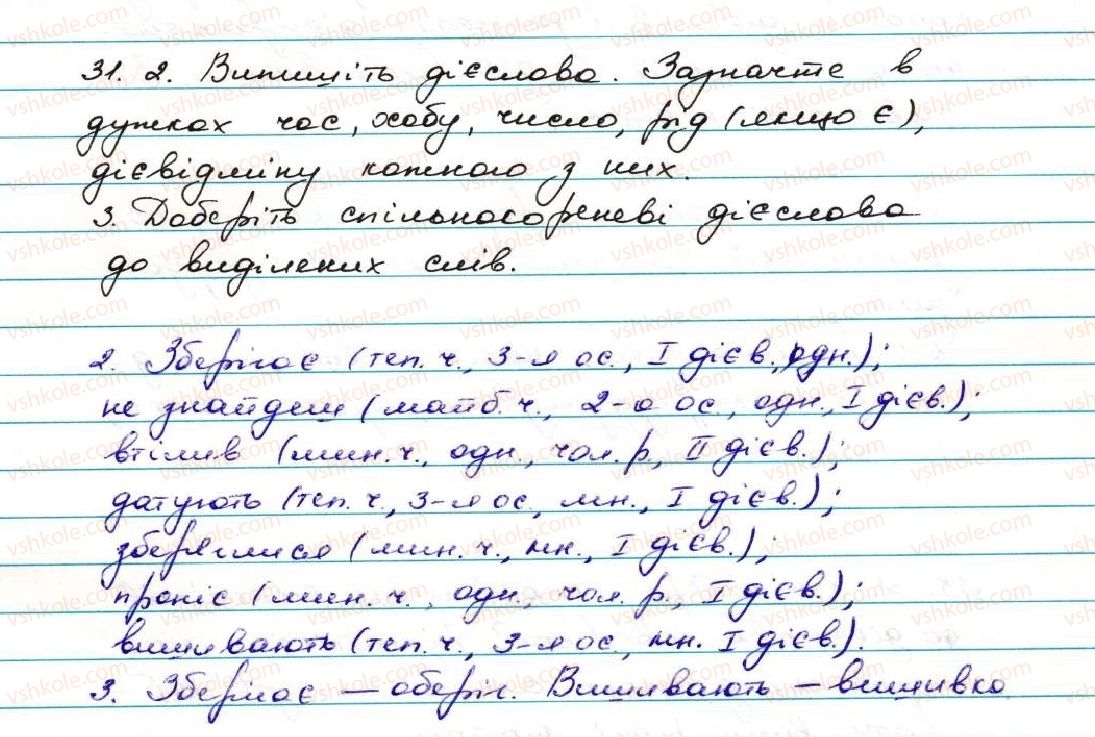 31. 2. Випишіть дієслова. Зазначте в
дужках час, особу, число, рід (якщо є),
дієвідміну кожного з них.
3. Доберіть спільнокореневі дієслова
до виділених слів.
2. Зберігає (теп. ч., 3-я ос., І дієв., одн.);
не знайдеш (майб. ч., 2-а ос., одн., І дієв.);
втілив (мин. ч., одн., чол. р., ІІ дієв.);
датують (теп. ч., 3-я ос., мн., І дієв.);
збереглися (мин. ч., мн., І дієв.);
проніс (мин. ч., одн., чол. р., І дієв.);
вишивають (теп. ч., 3-я ос., мн. І дієв.).
3. Зберігає — оберіг. Вишивають — вишивка
vshkole.com